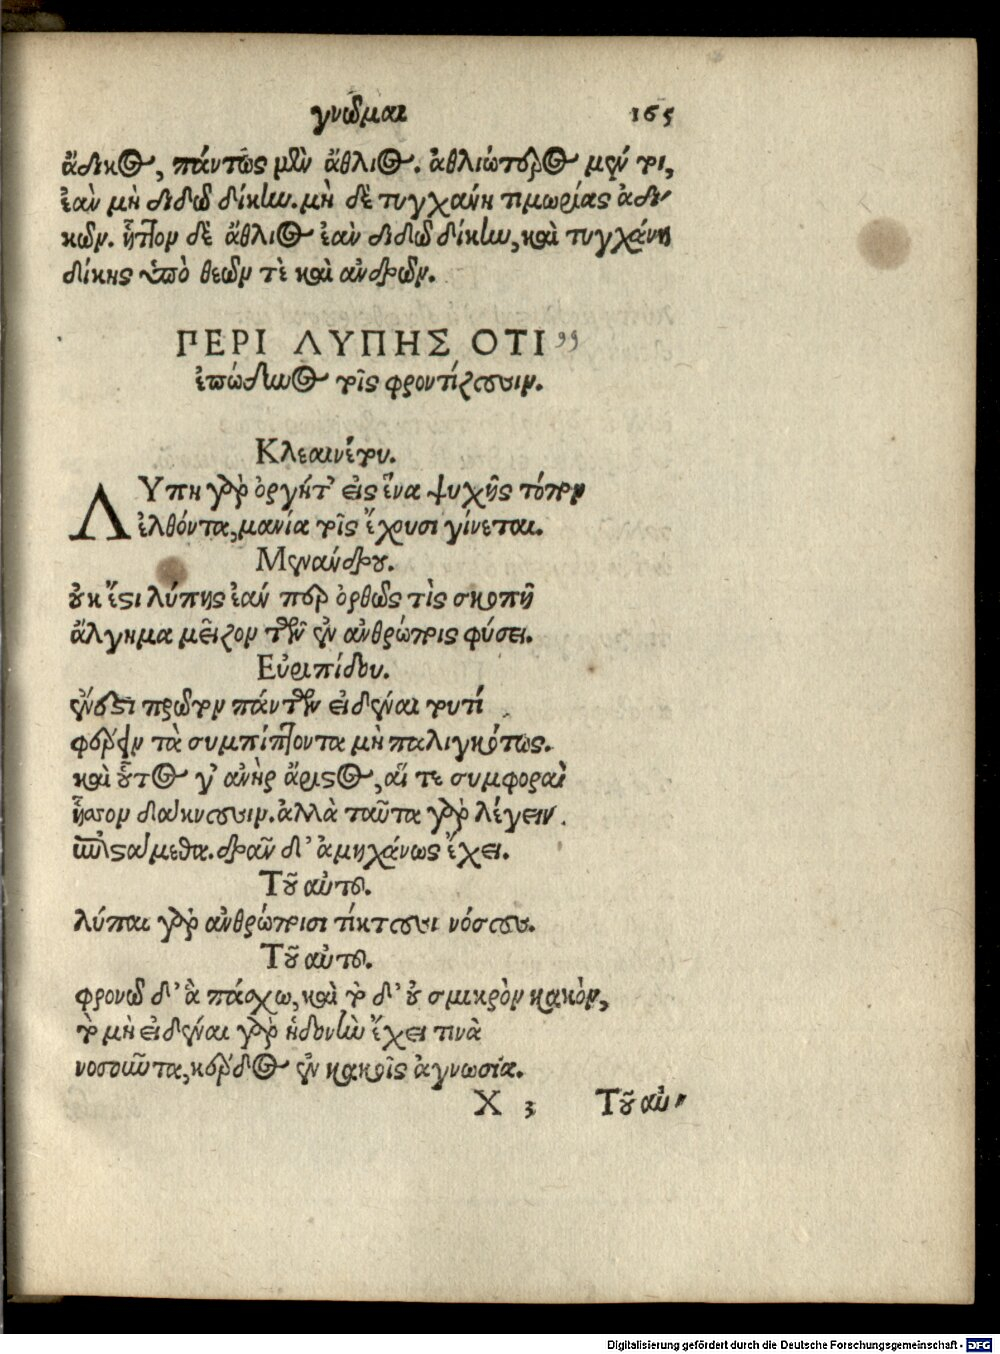 γνῶμαι 165
ἄδικος, πάντως μὲν ἄθλιος. ἀθλιώτερος μέν τοι,
ἐὰν μὴ διδῶ δίκην. μὴ δὲ τυγχάνη τιμωρίας ἀδι-
κῶν. ἧττον δὲ ἄθλιος ἐὰν διδῶ δίκην, καὶ τυγχάνη
δίκης ὑπὸ θεῶν τὲ καὶ ἀνδρῶν.
ΠΕΡΙ ΛΥΠΗΣ ΟΤΙ
ἐπώδυνος τοῖς φροντίζουσιν.
Κλεαινέτου.
ΛΥπη γὰρ ὀργήτ' εἰς ἕνα ψυχῆς τόπον
ἐλθόντα, μανία τοῖς ἔχουσι γίνεται.
Μενάνδρου.
οὐκ ἔστι λύπης ἐάν περ ὀρθῶς τὶς σκοπῇ
ἄλγημα μεῖζον τῶν ἐν ἀνθρώποις φύσει.
Εὐριπίδου.
ἔνεστι πρῶτον πάντων εἰδέναι τουτί
φέρειν τὰ συμπίπτοντα μὴ παλιγκότως.
καὶ οὗτος γ' ἀνὴρ ἄριστος, αἵ τε συμφοραὶ
ἧσσον δάκνουσιν. ἀλλὰ ταῦτα γὰρ λέγειν
ἐπιστάμεθα. δρᾶν δ' ἀμηχάνως ἔχει.
Τοῦ αὐτοῦ.
λύπαι γὰρ ἀνθρώποισι τίκτουσι νόσους.
Τοῦ αὐτοῦ.
φρονῶ δ' ἃ πάσχω, καὶ τὸ δ' οὐ σμικρὸν κακὸν,
τὸ μὴ εἰδέναι γὰρ ἡδονὴν ἔχει τινὰ
νοσοῦντα, κέρδος ἐν κακοῖς ἀγνωσία.
X 3 Τοῦ αὐ-
Digitalisierung gefördert durch die Deutsche Forschungsgemeinschaft - DFG